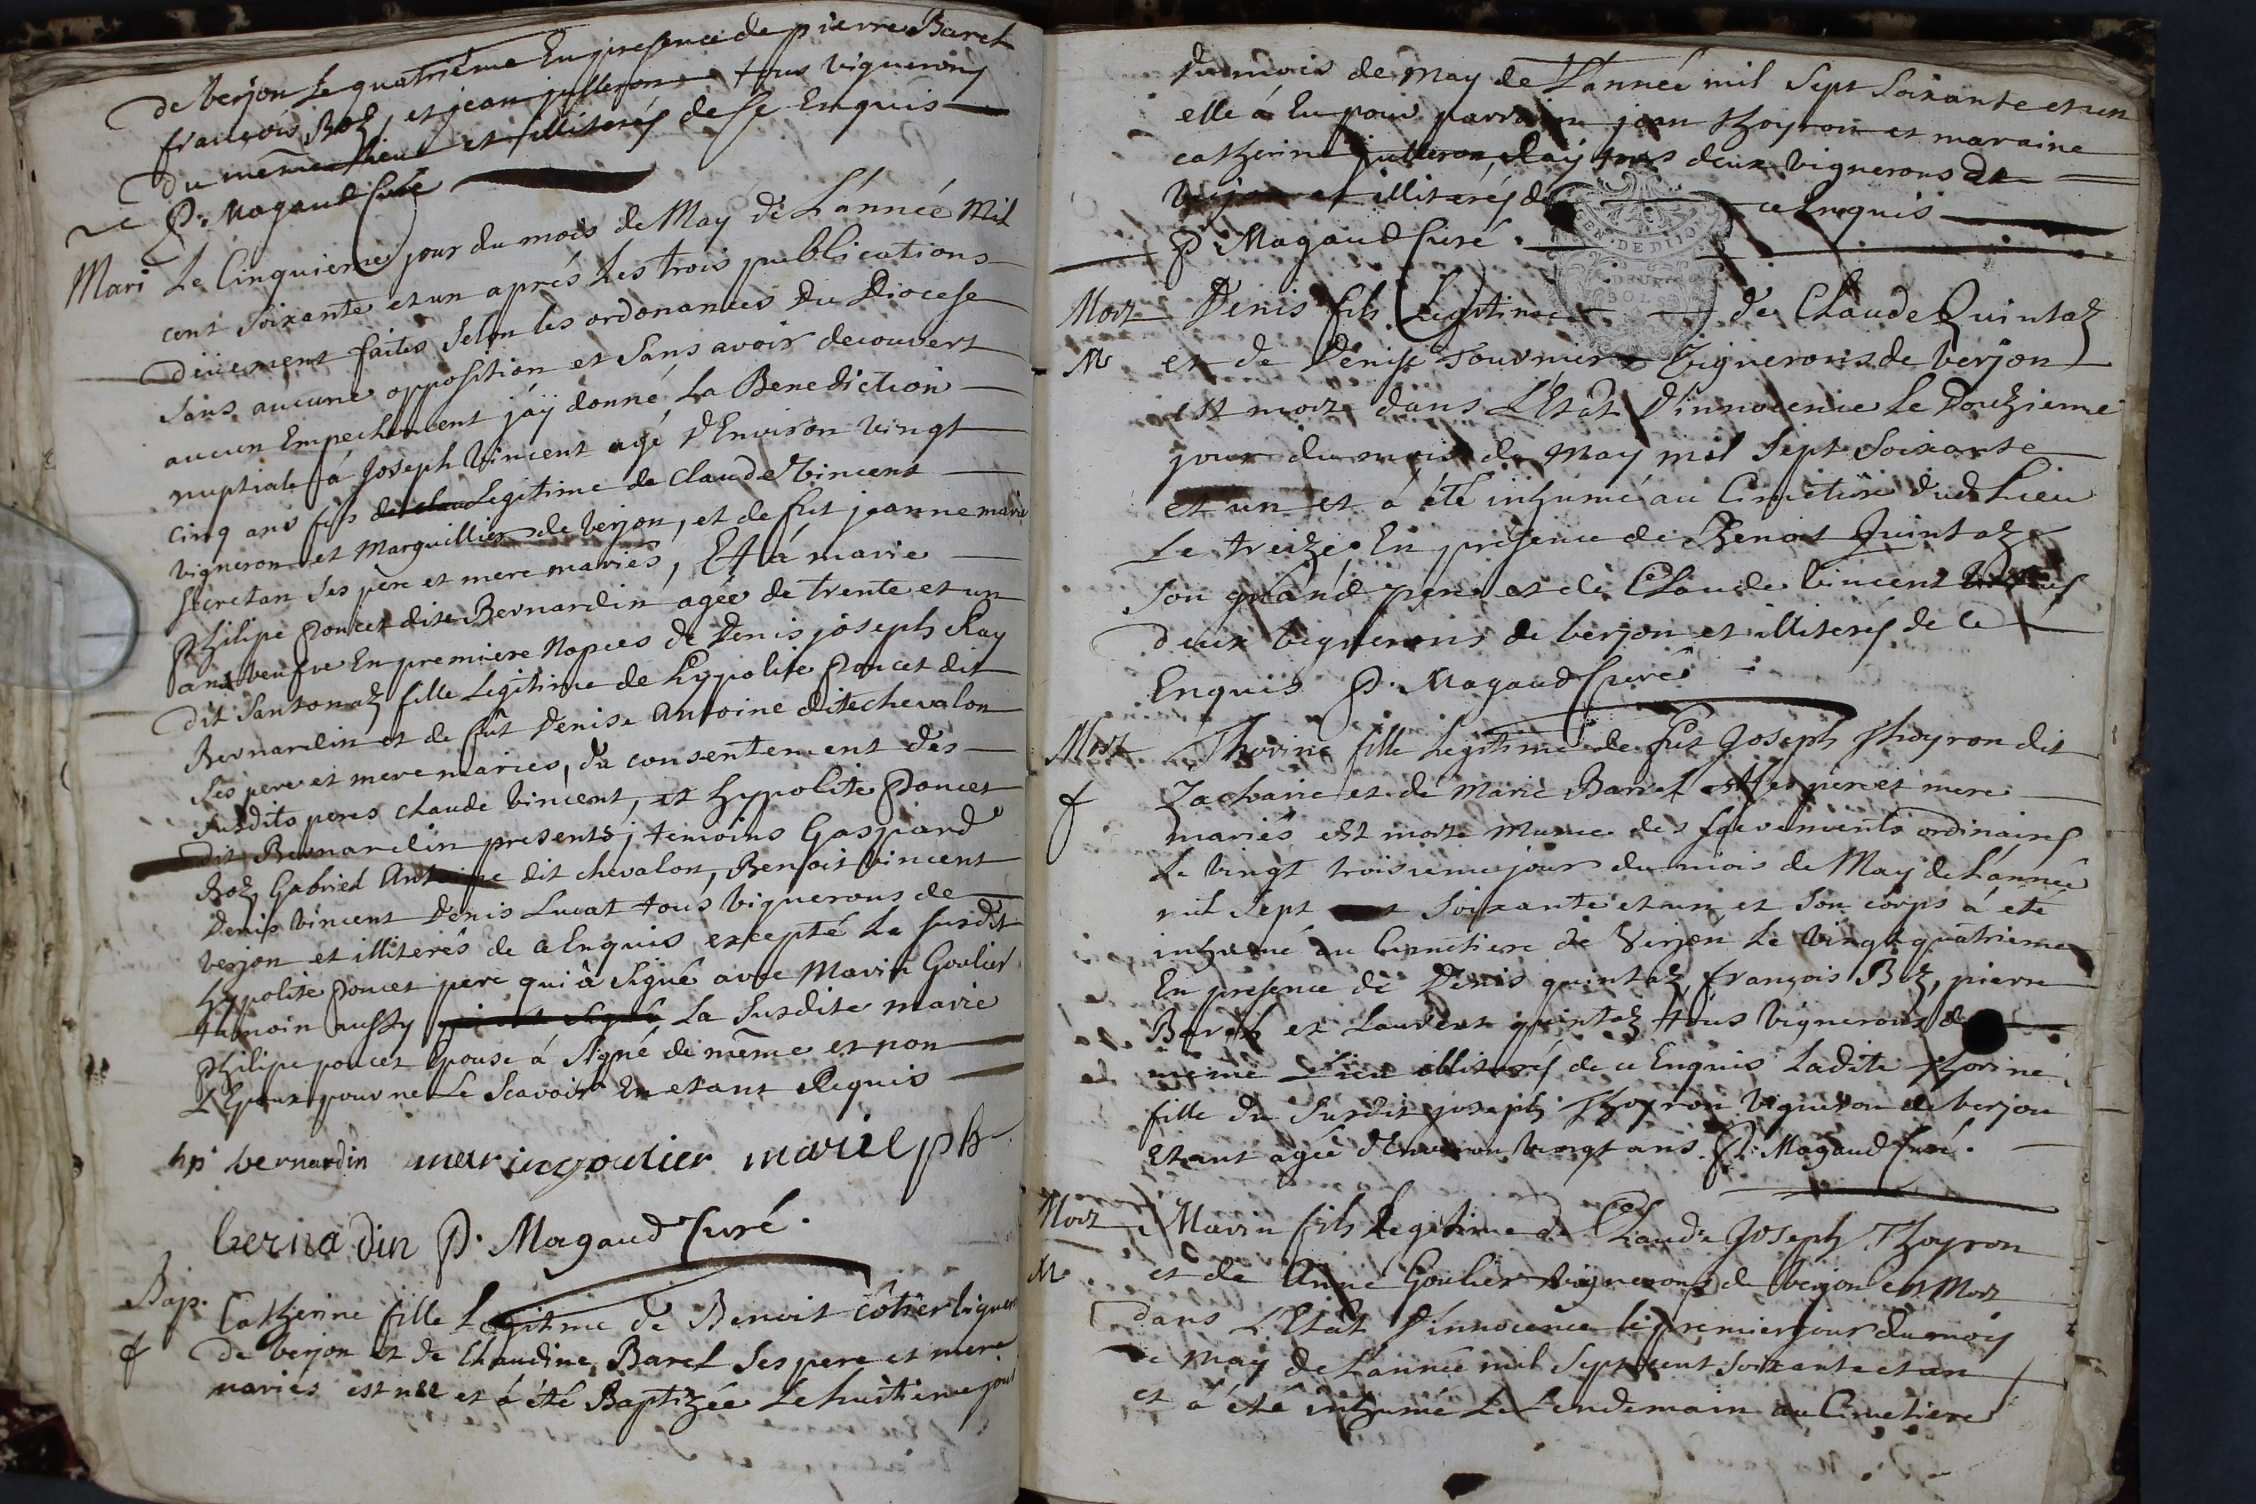 de verjon le quatriême En presence de pierre Baret
françois Boz, et jean julleron tous vignerons
du même lieu et illiterés de ce Enquis
P. Magaud Curé
Mari Le Cinquieme jour du mois de May de L'année Mil
cent soixante et un aprés les trois publications
düement faites selon les ordonances du Diocese
sans aucune opposition et sans avoir decouvert
aucun Empechement j'aÿ donné La Benediction
nuptiale á Joseph Vincent agé d'Environ vingt
cinq ans fils Legitime de Claude Vincent
vigneron et Marguillier de verjon, et de fut jeanne marie
secretan ses pere et mere mariés, Et á marie
Philipe Poncet dite Bernardin agée de trente et un
ans veufve En premiere Nopces de Denis joseph Ray
dit Santonaz fille Legitime de hypolite Poncet dit
Bernardin et de fût Denise Antoine dite chevalon
ses pere et mere mariés, du consentement des
susdits peres claude vincent, et hypolite Poncet
dit Bernardin presents; temoins Gaspard
Boz, Gabriel Antoine dit chevalon, Benoit vincent
Denis vincent Denis Lucat tous vignerons de
verjon et illiterés de ce Enquis excepté Le susdit
hypolite Poncet pere qui à signé avec Marin Goulier
temoin aussy La susdite marie
Philipe poncet Epouse á signé de même et non
L'Epoux pour ne Le Scavoir En etant Requis
hp bernardin marin goulier marie ph
bernadin P. Magaud Curé.
Bap. Catherine fille Legitime de Benoit côtier vigneron
f de verjon et de Claudine Baret ses pere et mere
mariés est née et á été Baptizée Le huitieme jour
du mois de May de L'année mil sept soixante et un
elle á Eu pour parrain jean Thoyron et maraine
catherine julleron Ray tous deux vignerons de
verjon et illiterés de ce Enquis
P. Magaud Curé.
EN. DE DIJON
SOLS
Mort Denis fils Legitime de Claude Quintaz
M et de Denise Tournier vignerons de verjon
est mort dans L'Etât D'innocence Le Douzieme
jour du mois de May mil sept soixante
et un et á été inhumé au Cimetiere dud Lieu
Le treize. En presence de Benoit Quintaz
son grand pere et de Claude Vincent
deux vignerons de verjon et illiterés de ce
Enquis P. Magaud Curé
Mort Thorine fille Legitime de fut Joseph Thoyron dit
f Zacharie et de Marie Baret ses pere et mere
mariés est morte Munie des sacrements ordinaires
Le vingt troisieme jour du mois de May de L'année
mil sept soixante et un et son corps á eté
inhumé au Cimetiere de Verjon Le vingt quatrieme
En presence de Denis quintaz, françois Boz, pierre
Baret et Laurent quintaz tous vignerons du
même Lieu illiterés de ce Enquis Ladite Thorine
fille du susdit joseph Thoyron vigneron de verjon
etant agée d'Environ vingt ans. P. Magaud Curé.
Mort Marin fils Legitime de Claude Joseph Thoyron
M et de Anne Goulier vignerons de verjon est Mort
dans L'Etât D'innocence le premier jour du mois
de May de L'année mil sept cent soixante et un
et á été inhumé Le Lendemain au Cimetiere